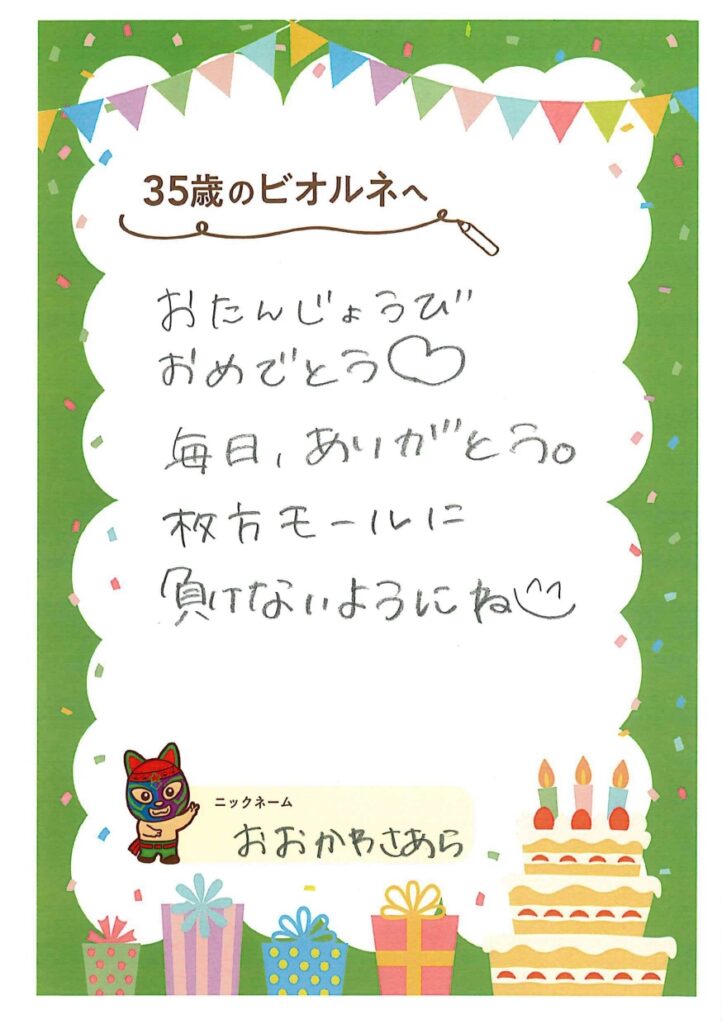 35歳のビオルネへ
おたんじょうび
おめでとう♡
毎日、ありがとう。
枚方モールに
負けないようにね
ニックネーム
おおかやさあら